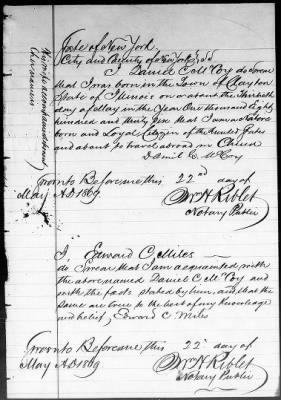 State of New York,
City and County of New York } SS
I Daniel C McCoy do Swear
that I was born in the Town of Clayton
State of Illinois on or about the Thirtieth
day of May in the Year One thousand Eight
hundred and thirty five that I am a Native
born and Loyal Citizen of the United States
and about to travel abroad in China
Daniel C. McCoy
Sworn to Before me this 22nd day of
May A.D 1869
Wm H Riblet
Notary Public
I, Edward C. Miles
do Swear that I am acquainted with
the above named Daniel C McCoy and
with the facts stated by him, and that the
same are true to the best of my Knowledge
and belief, Edward C Miles
Sworn to Before me this 22d day of
May A.D 1869
Wm H Riblet
Notary Public